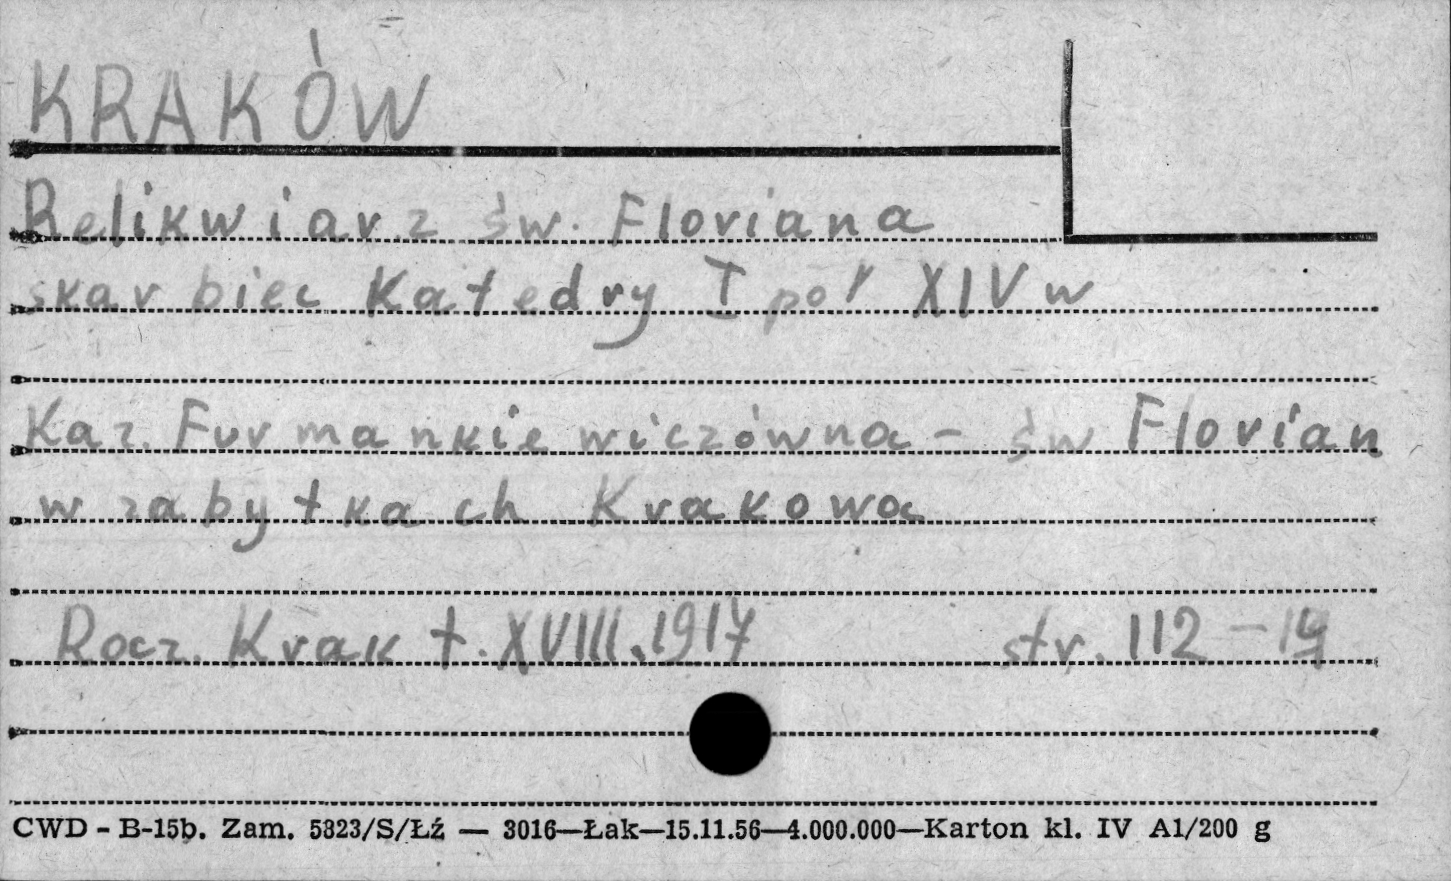 KRAKÓW
Relikwiarz św. Floriana
skarbiec Katedry I poł XIV w
Kaz. Furmankiewiczówna - św Florian
w zabytkach Krakowa
Rocz. Krak t. XVIII. 1917 str. 112-14
CWD - B-15b. Zam. 5323/S/Łź — 3016—Łak—15.11.56—4.000.000—Karton kl. IV A1/200 g